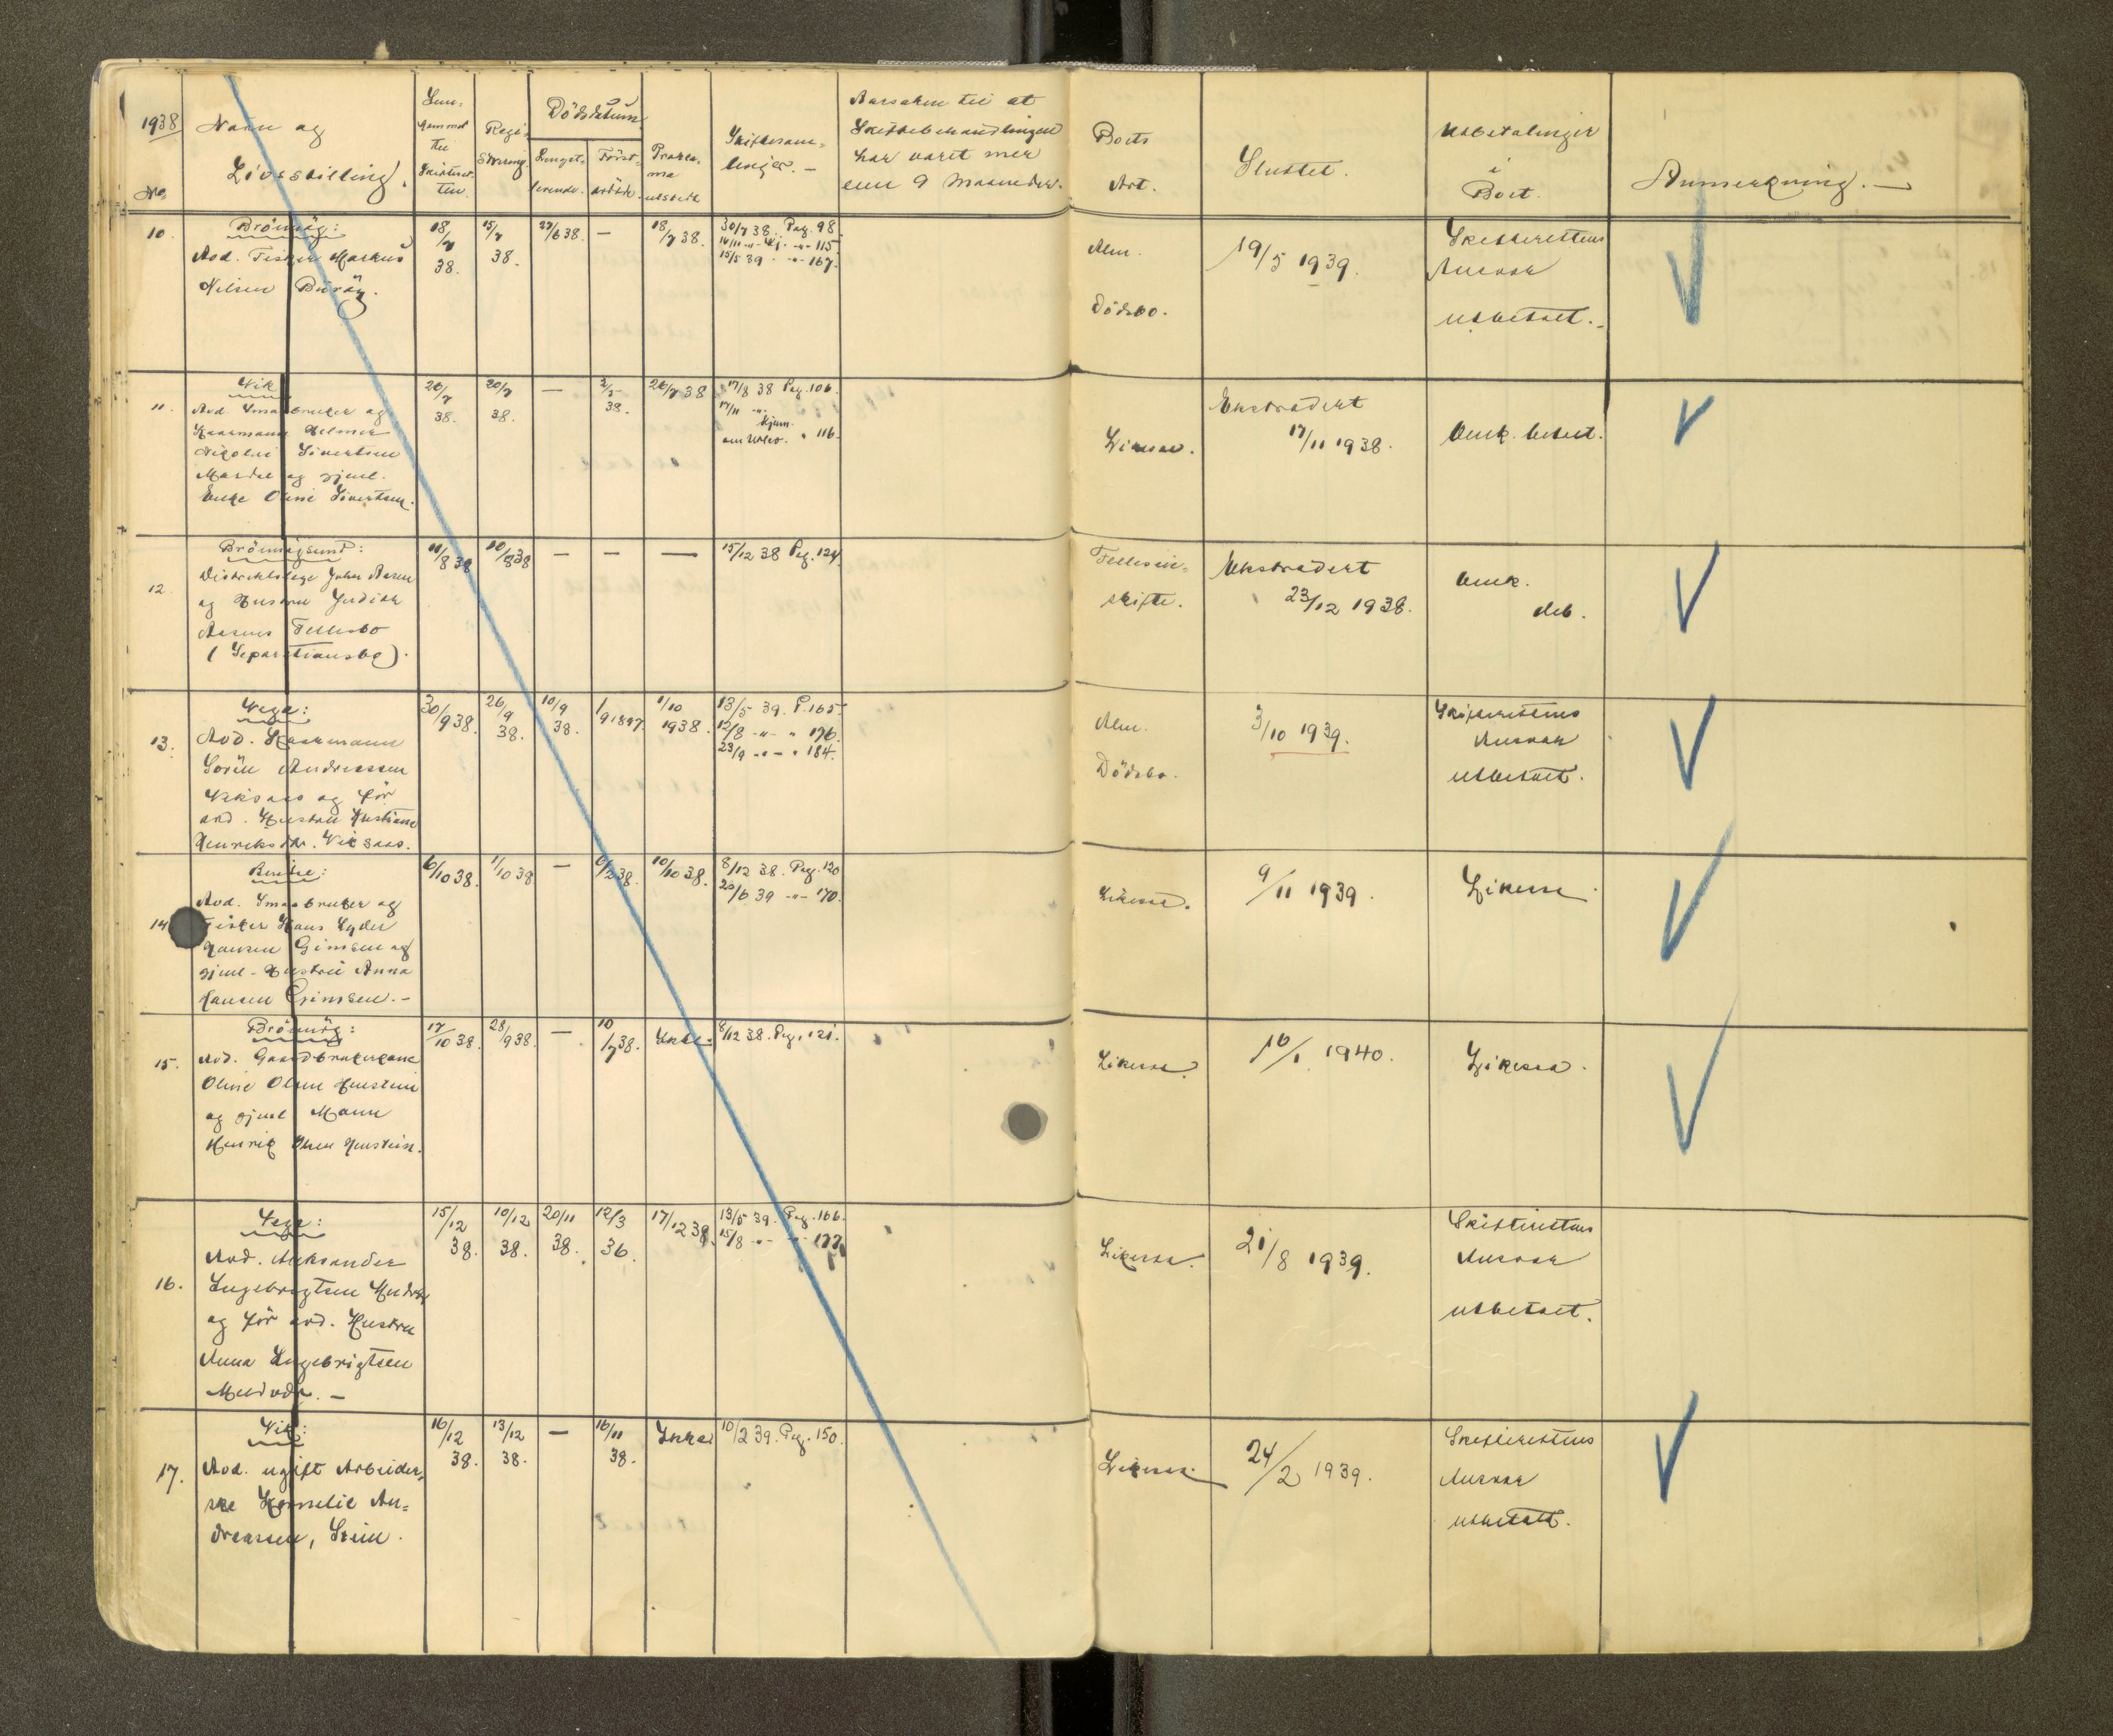 1938
No.
Navn og
Livsstilling.
Regi-
strering.
Dödsdatum.
Længst-
levende.
Först-
avdöde.
Prokla-
ma
utstedt
Skiftesam-
linger. -
Aarsaken til at
Skiftebehandlingen
har varet mer
enn 9 Maaneder.
Boets
Art.
Sluttet.
Utbetalinger
i
Boet.
Anmerkning. -
10.
Brönnöy:
Avd. Fisker Markus
Nilsen
18/7
38.
15/7
38.
27/6 38.
-
18/7 38.
30/7 38. Pag. 98.
15/5 39. -"- 167.
Alm.
Dödsbo.
19/5 1939.
Skifterettens
Ansvar
utbetalt. -
11.
Vik
Avd. Smaabruker og
Kaarmann Helmer
Nikolai Sivertsen
og gjenl.
Enke Oline Sivertsen.
26/7
38.
20/7
38.
-
2/5
38.
26/7 38
17/8 38 Pag. 106.
17/11 -"-
" 116.
Likesaa.
Ekstradert
17/11 1938.
12
Brönnöysund:
Distriktslege John Aasen
og Hustru Judith
Aasens Fellesbo
(Separationsbo).
11/8 38
10/8 38
-
-
-
15/12 38 Pag. 124.
Felleseie-
skifte.
Ekstradert
23/12 1938.
13.
Vega:
Avd. Kaarmann
Sörin Andreassen
Viksaas og för
avd. Hustru Kristiane
Henriksdtr. Viksaas.
30/9 38.
26/9
38.
10/9
38.
1/9 1897
1/10
1938.
13/5 39. P. 165.
12/8 -"- " 176.
23/9 -"- " 184.
Alm.
Dödsbo.
3/10 1939.
Skifterettens
Ansvar
utbetalt.
14
Bindal:
Avd. Smaabruker og
Fisker Hans Lyder
Hansen Grimsen og
gjenl. Hustru Anna
Hansen Grimsen. -
6/10 38.
1/10 38
-
6/2 38.
10/10 38.
8/12 38. Pag. 120
20/6 39 -"- 170.
Likesaa.
9/11 1939.
Likesaa.
15.
Brönnöy:
Avd. Gaardbrukerkone
Oline Olsen Henstein
og gjenl Mann
Henrik Olsen Henstein.
17/10 38.
28/9 38.
-
10/7 38.
8/12 38. Pag. 121.
Likesaa.
16/1 1940.
Likesaa.
16.
Vega:
Avd. Aleksander
Ingebrigtsen
og för avd. Hustru
Anna Ingebrigtsen
15/12
38.
10/12
38.
20/11
38.
12/3
36.
17/12 38.
13/5 39. Pag. 166.
15/8 -"- -"- 177.
Likesaa.
21/8 1939.
Skifterettens
Ansvar
utbetalt.
17.
Vik:
Avd. ugift Arbeider-
ske Kornelie An-
dreassen, Stein.
16/12
38.
13/12
38.
-
16/11
38.
10/2 39. Pag. 150.
Likesaa.
24/2 1939.
Skifterettens
Ansvar
utbetalt.